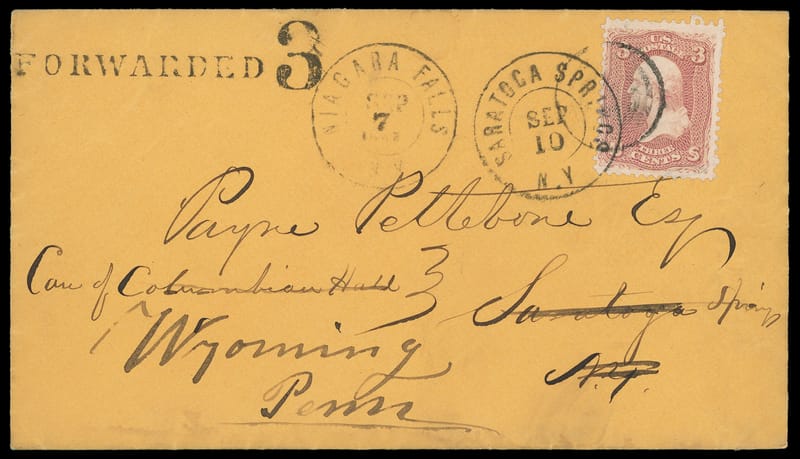 FORWARDED 3
NIAGARA FALLS
SEP
7
N.Y.
SARATOGA SPRINGS
SEP
10
N.Y
U.S.
POSTAGE
3 3
THREE
CENTS
Payne Pettebone Esq
Care of Columbian Hotel
Saratoga Springs
N.Y.
Wyoming
Penn